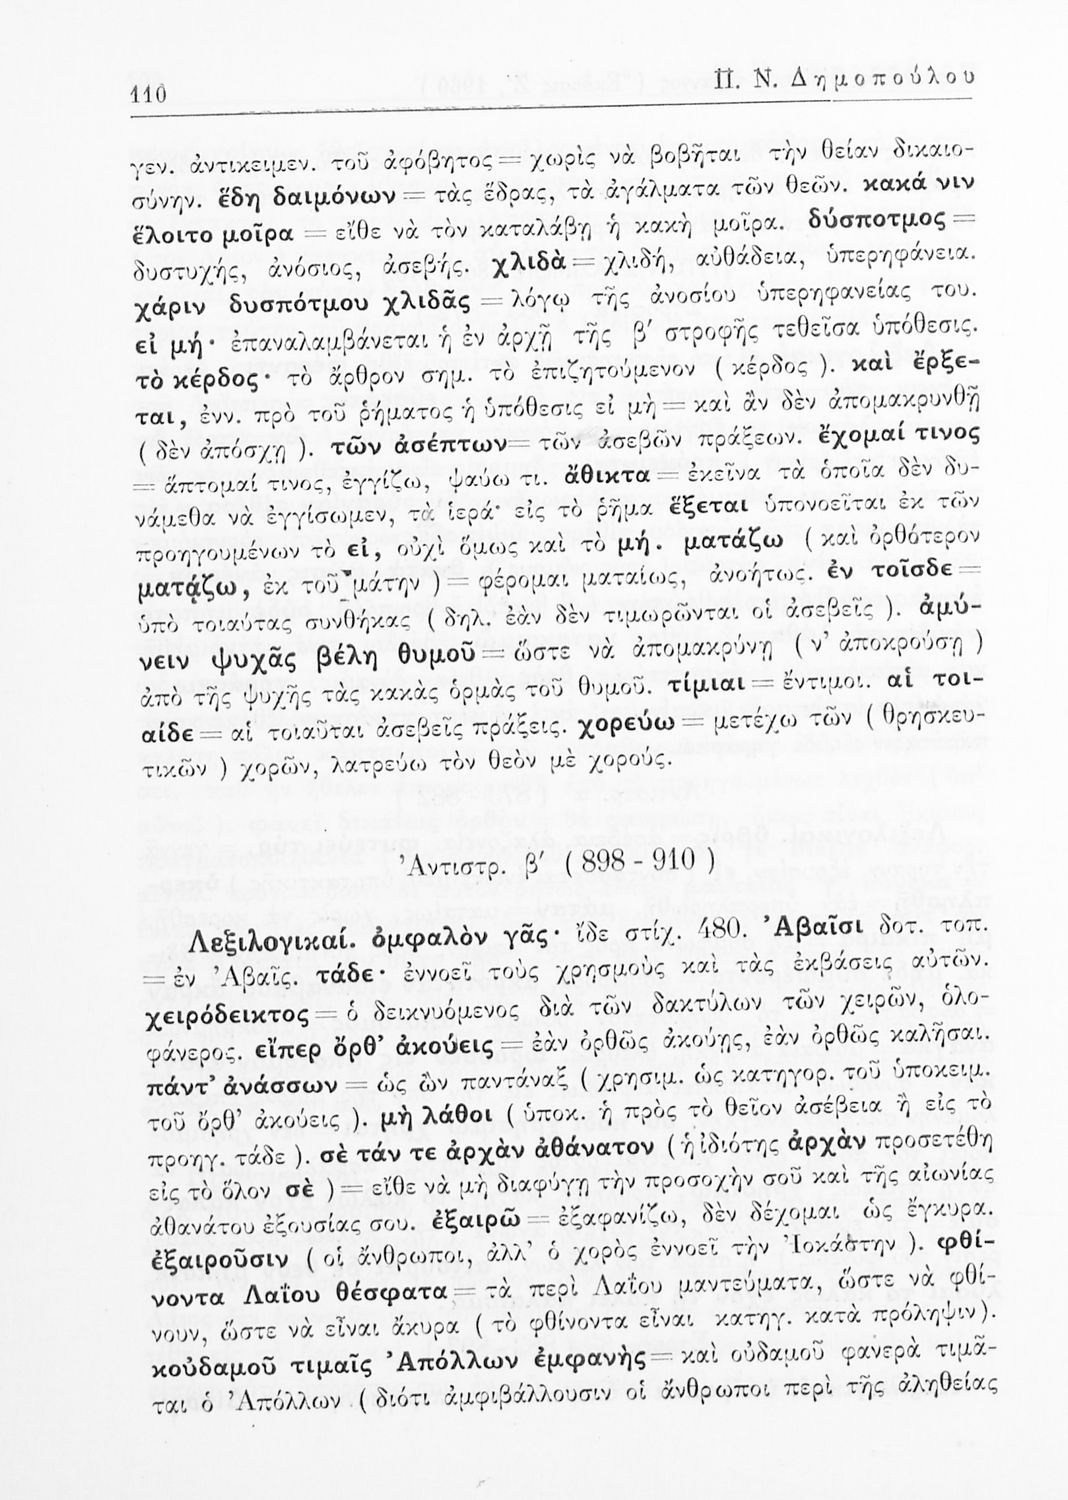 110 Π. Ν. Δημοπούλου
γεν. ἀντικειμεν. τοῦ ἀφόβητος = χωρὶς νὰ βοβῆται τὴν θείαν δικαιο-
σύνην. ἕδη δαιμόνων = τὰς ἕδρας, τὰ ἀγάλματα τῶν θεῶν. κακά νιν
ἕλοιτο μοῖρα = εἴθε νὰ τὸν καταλάβῃ ἡ κακὴ μοῖρα. δύσποτμος =
δυστυχής, ἀνόσιος, ἀσεβής. χλιδὰ = χλιδή, αὐθάδεια, ὑπερηφάνεια.
χάριν δυσπότμου χλιδᾶς = λόγῳ τῆς ἀνοσίου ὑπερηφανείας του.
εἰ μή· ἐπαναλαμβάνεται ἡ ἐν ἀρχῇ τῆς β′ στροφῆς τεθεῖσα ὑπόθεσις.
τὸ κέρδος· τὸ ἄρθρον σημ. τὸ ἐπιζητούμενον ( κέρδος ). καὶ ἔρξε-
ται, ἐνν. πρὸ τοῦ ῥήματος ἡ ὑπόθεσις εἰ μὴ = καὶ ἂν δὲν ἀπομακρυνθῇ
( δὲν ἀπόσχῃ ). τῶν ἀσέπτων = τῶν ἀσεβῶν πράξεων. ἔχομαί τινος
= ἅπτομαί τινος, ἐγγίζω, ψαύω τι. ἄθικτα = ἐκεῖνα τὰ ὁποῖα δὲν δυ-
νάμεθα νὰ ἐγγίσωμεν, τὰ ἱερά· εἰς τὸ ῥῆμα ἕξεται ὑπονοεῖται ἐκ τῶν
προηγουμένων τὸ εἰ, οὐχὶ ὅμως καὶ τὸ μή. ματάζω ( καὶ ὀρθότερον
ματᾴζω, ἐκ τοῦ μάτην ) = φέρομαι ματαίως, ἀνοήτως. ἐν τοῖσδε =
ὑπὸ τοιαύτας συνθήκας ( δηλ. ἐὰν δὲν τιμωρῶνται οἱ ἀσεβεῖς ). ἀμύ-
νειν ψυχᾶς βέλη θυμοῦ = ὥστε νὰ ἀπομακρύνῃ ( ν’ ἀποκρούσῃ )
ἀπὸ τῆς ψυχῆς τὰς κακὰς ὁρμὰς τοῦ θυμοῦ. τίμιαι = ἔντιμοι. αἱ τοι-
αίδε = αἱ τοιαῦται ἀσεβεῖς πράξεις. χορεύω = μετέχω τῶν ( θρησκευ-
τικῶν ) χορῶν, λατρεύω τὸν θεὸν μὲ χορούς.
Ἀντιστρ. β′ ( 898 - 910 )
Λεξιλογικαί. ὀμφαλὸν γᾶς· ἴδε στίχ. 480. Ἀβαῖσι δοτ. τοπ.
= ἐν Ἀβαῖς. τάδε· ἐννοεῖ τοὺς χρησμοὺς καὶ τὰς ἐκβάσεις αὐτῶν.
χειρόδεικτος = ὁ δεικνυόμενος διὰ τῶν δακτύλων τῶν χειρῶν, ὁλο-
φάνερος. εἴπερ ὄρθ’ ἀκούεις = ἐὰν ὀρθῶς ἀκούῃς, ἐὰν ὀρθῶς καλῆσαι.
πάντ’ ἀνάσσων = ὡς ὢν παντάναξ ( χρησιμ. ὡς κατηγορ. τοῦ ὑποκειμ.
τοῦ ὄρθ’ ἀκούεις ). μὴ λάθοι ( ὑποκ. ἡ πρὸς τὸ θεῖον ἀσέβεια ἢ εἰς τὸ
προηγ. τάδε ). σὲ τάν τε ἀρχὰν ἀθάνατον ( ἡ ἰδιότης ἀρχὰν προσετέθη
εἰς τὸ ὅλον σὲ ) = εἴθε νὰ μὴ διαφύγῃ τὴν προσοχὴν σοῦ καὶ τῆς αἰωνίας
ἀθανάτου ἐξουσίας σου. ἐξαιρῶ = ἐξαφανίζω, δὲν δέχομαι ὡς ἔγκυρα.
ἐξαιροῦσιν ( οἱ ἄνθρωποι, ἀλλ’ ὁ χορὸς ἐννοεῖ τὴν Ἰοκάστην ). φθί-
νοντα Λαΐου θέσφατα = τὰ περὶ Λαΐου μαντεύματα, ὥστε νὰ φθί-
νουν, ὥστε νὰ εἶναι ἄκυρα ( τὸ φθίνοντα εἶναι κατηγ. κατὰ πρόληψιν).
κοὐδαμοῦ τιμαῖς Ἀπόλλων ἐμφανὴς = καὶ οὐδαμοῦ φανερὰ τιμᾶ-
ται ὁ Ἀπόλλων ( διότι ἀμφιβάλλουσιν οἱ ἄνθρωποι περὶ τῆς ἀληθείας